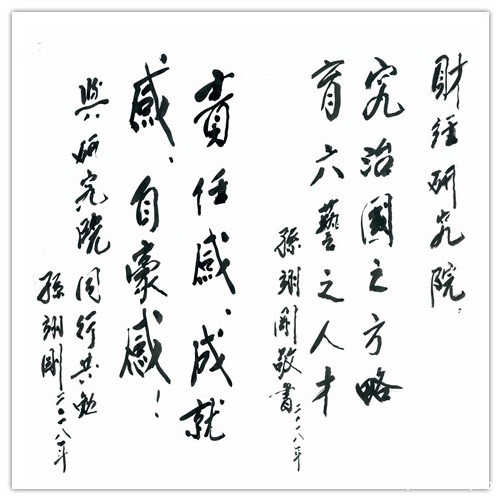 財經研究院：
究治國之方略
育六藝之人才
孫翊剛敬書二〇一八年
責任感、成就
感、自豪感！
與研究院同行共勉
孫翊剛二〇一八年